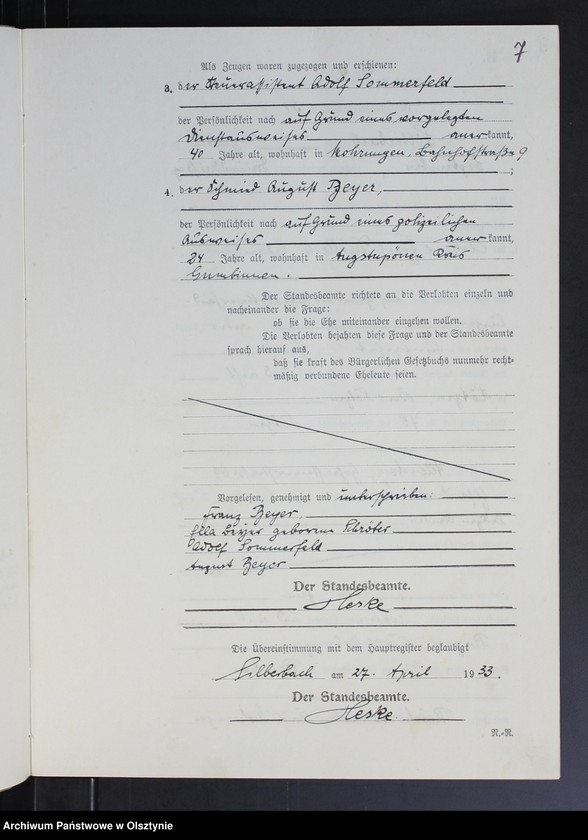 7
Als Zeugen waren zugezogen und erschienen:
3. der Steuerassistent Adolf Sommerfeld
der Persönlichkeit nach auf Grund eines vorgelegten
Dienstausweises anerkannt,
40 Jahre alt, wohnhaft in Mohrungen, Bahnhofstraße 9
;
4. der Schmied August Beyer,
der Persönlichkeit nach auf Grund eines polizeilichen
Ausweises anerkannt,
24 Jahre alt, wohnhaft in Augstupönen Kreis
Gumbinnen.
Der Standesbeamte richtete an die Verlobten einzeln und
nacheinander die Frage:
ob sie die Ehe miteinander eingehen wollen.
Die Verlobten bejahten diese Frage und der Standesbeamte
sprach hierauf aus,
daß sie kraft des Bürgerlichen Gesetzbuchs nunmehr recht-
mäßig verbundene Eheleute seien.
Vorgelesen, genehmigt und unterschrieben:
Franz Beyer
Ella Beyer geborene Schröter
Adolf Sommerfeld
August Beyer
Der Standesbeamte.
Heske
Die Übereinstimmung mit dem Hauptregister beglaubigt
Silberbach am 27. April 1933.
Der Standesbeamte.
Heske
N.-R.
Archiwum Państwowe w Olsztynie